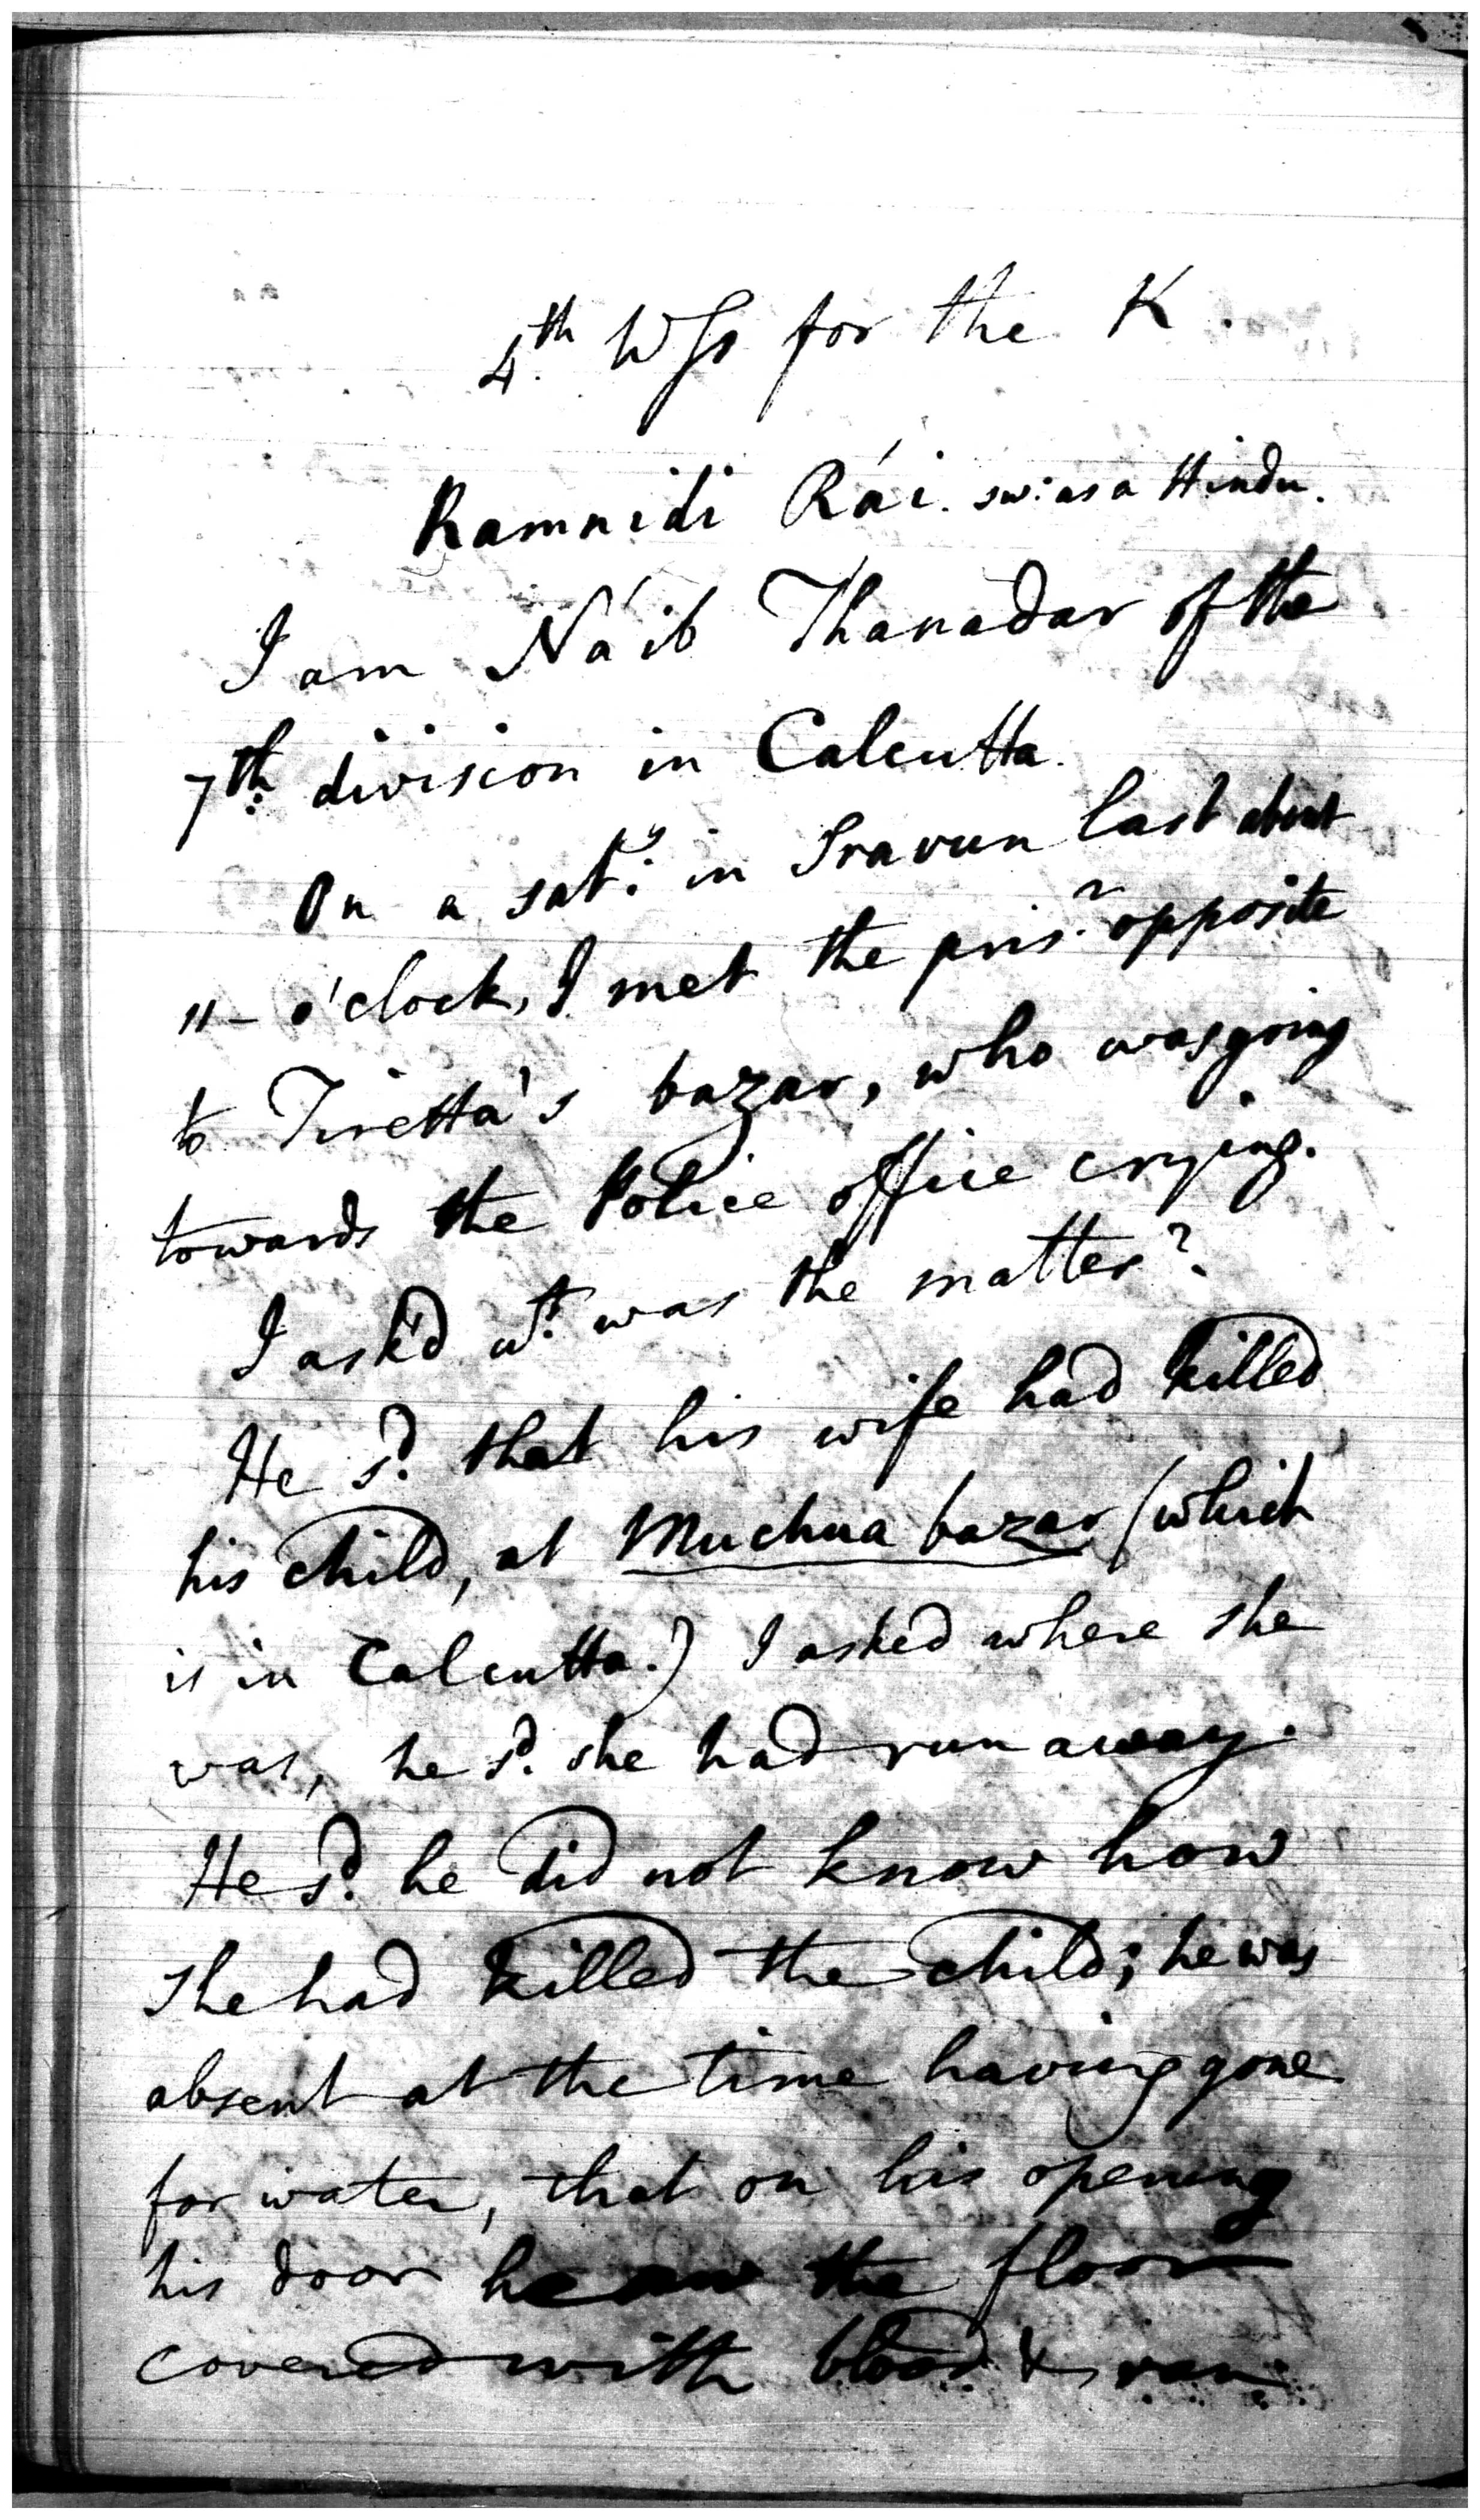 4th. Wss for the K.
Ramnidi Rái. sw: as a Hindu.
I am Náib Thanadar of the
7th: division in Calcutta.
On a saty. in Sravun last about
11 - o'clock, I met the prisr. opposite
to Tiretta's bazar, who was going
towards the Police office crying.
I ask'd wt. was the matter?
He sd. that his wife had killed
his child, at Muchua bazar (which
is in Calcutta.) I asked where she
was, he sd. she had run away.
He sd. he did not know how
she had killed the child; he was
absent at the time having gone
for water, that on his opening
his door he saw the floor
covered with blood & ran